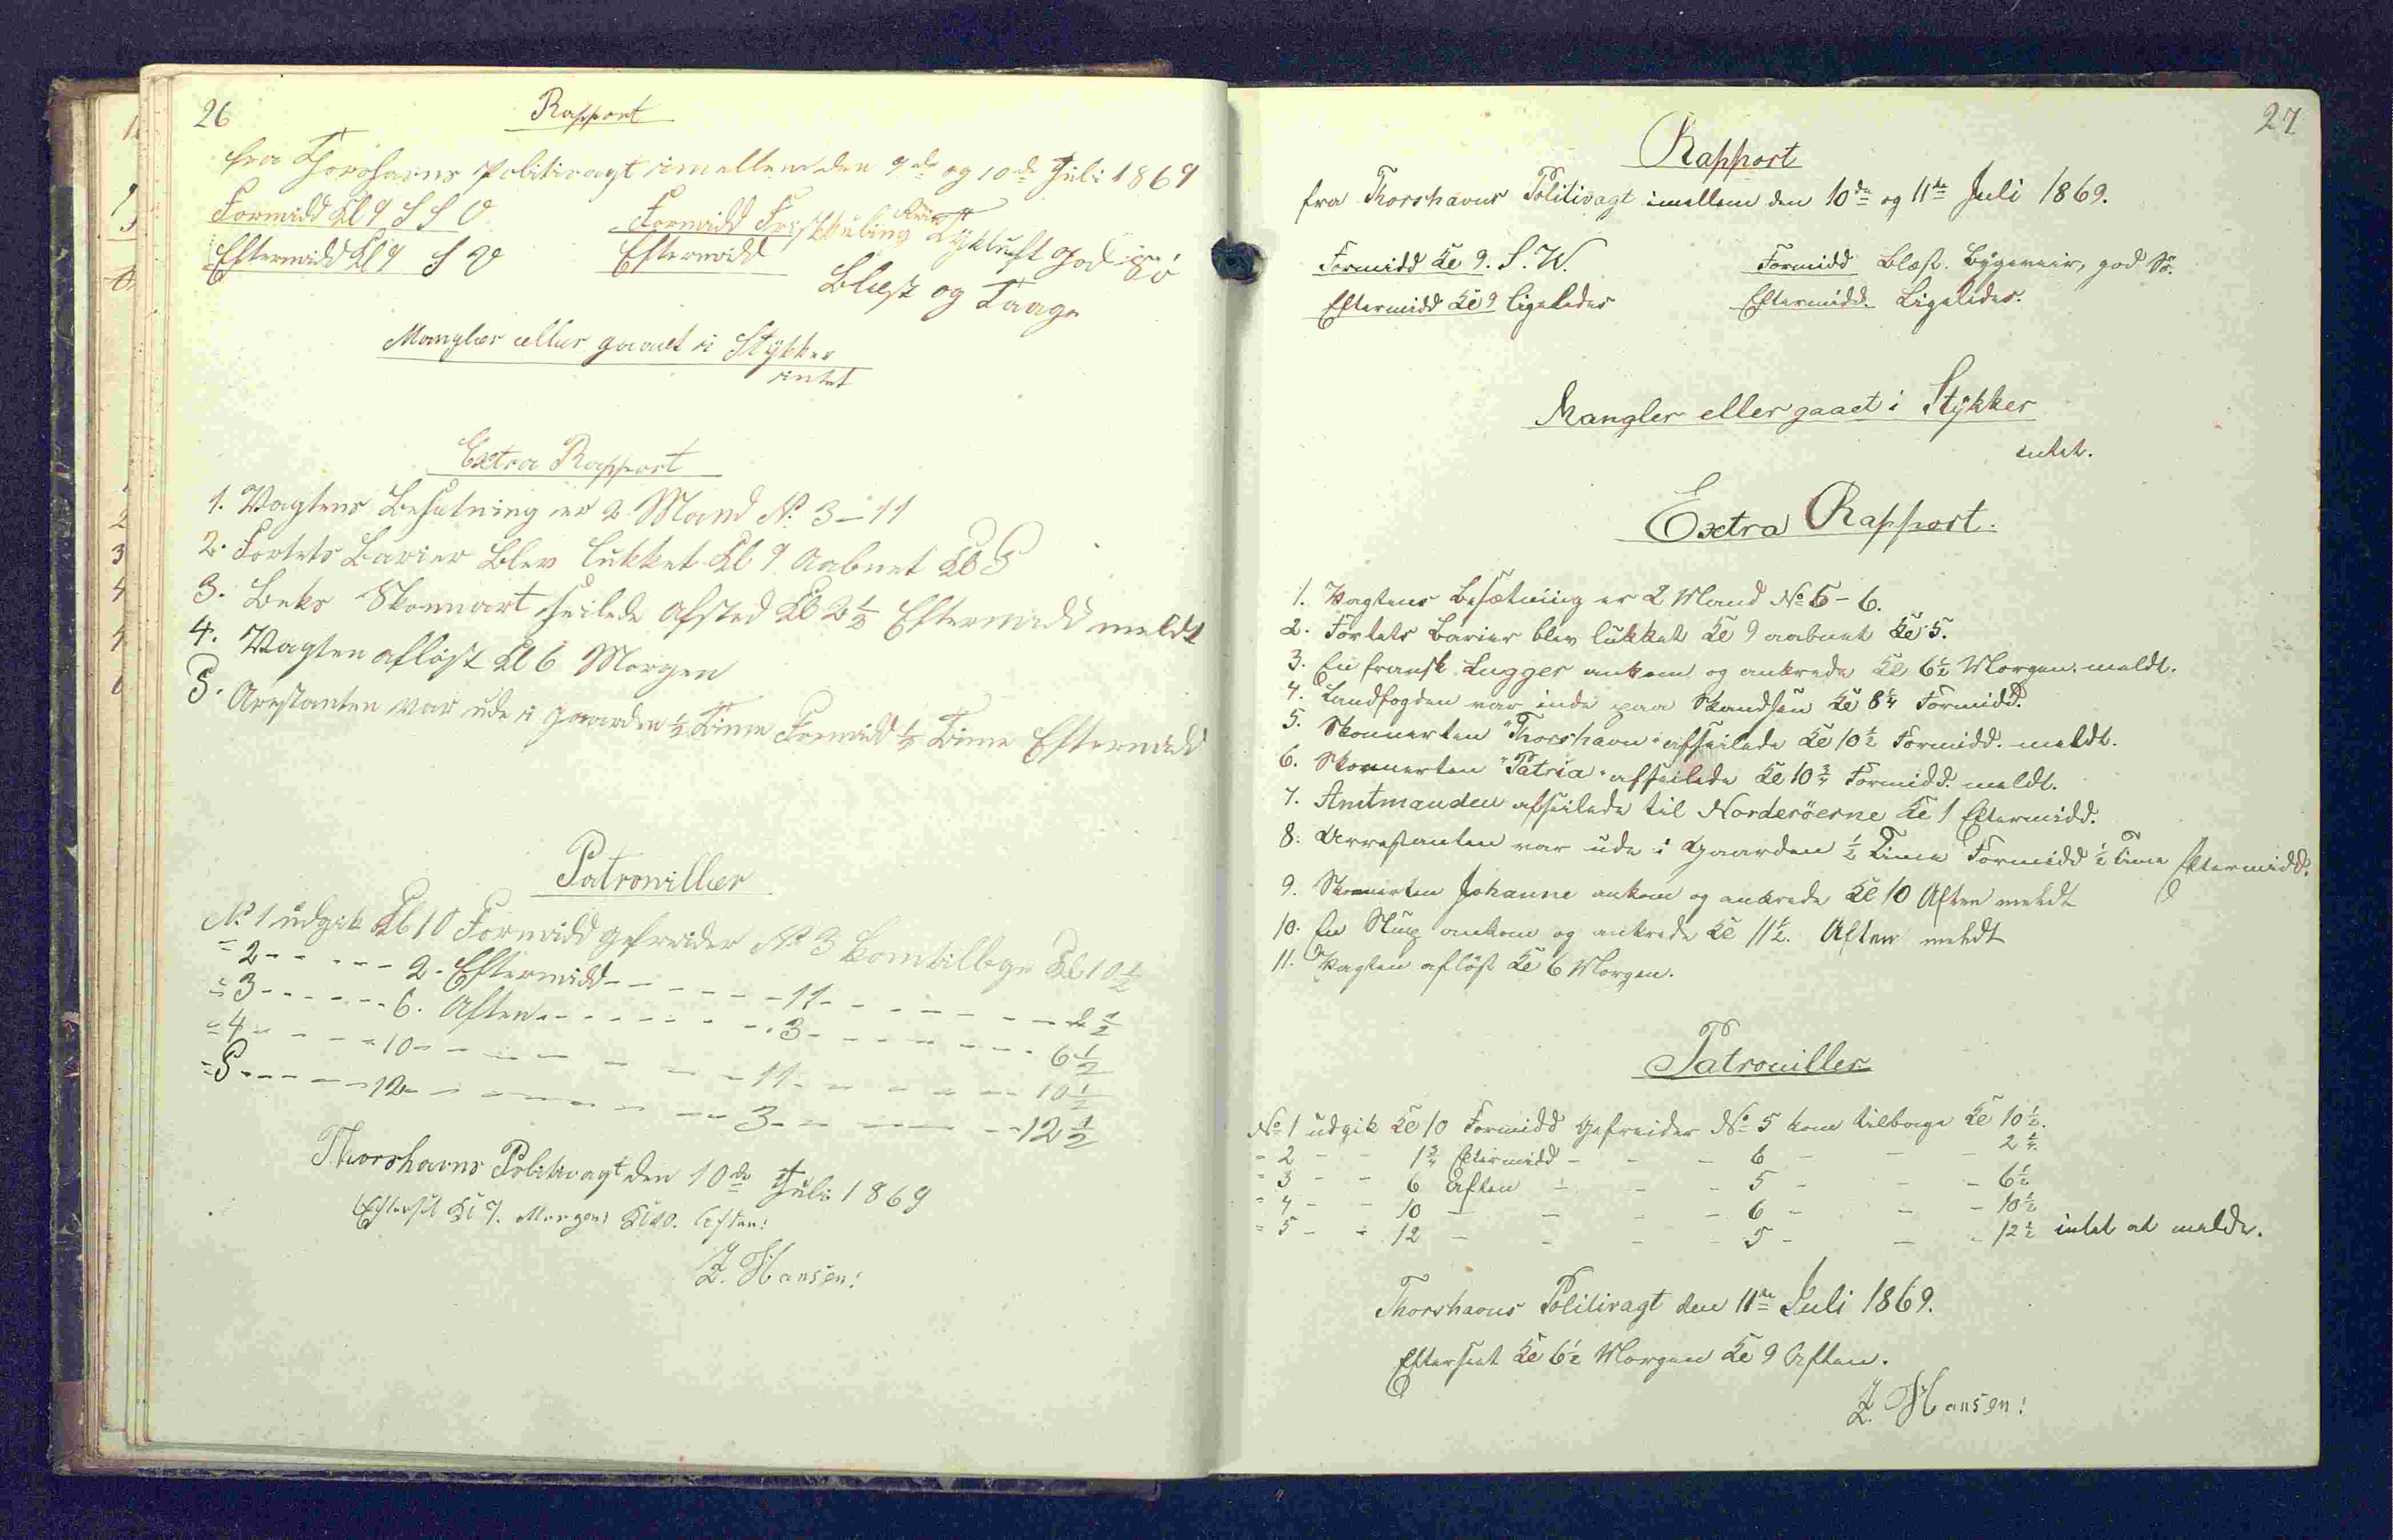 26
Rapport
fra Thorshavns Politivagt imellem den 9de og 10de Juli 1869
Formidd Kl 9 S S O
Formidd Friskkuling Tykluft god Sö
Eftermidd Kl 9 S V
Eftermidd
Blæst og Taage
Mangler eller gaaet i Stykker
intet
Extra Rapport
1. Vagtens Besætning er 2 Mand No 3-11
2. Fortets Barier Blev lukket Kl 9 Aabnet Kl 5
3. Skonnart seilede afsted Kl 2 1/2 Eftermidd meldt
4. Vagten aflöst Kl 6 Morgen
5. Arestanten var ude i gaarden 1/2 Time Formidd 1/2 Time Eftermidd
Patrouiller
No 1 udgik Kl 10 Formidd gefreider No 3 kom tilbage Kl 10 1/2
= 2 - - - - - 2. Eftermidd - - - - - - 11 - - - - - - 2 1/2
= 3 - - - - - - 6. Aften - - - - - - - 3 - - - - - - - 6 1/2
= 4 - - - - - 10 - - - - - - - - 11 - - - - - - 10 1/2
= 5 - - - - - 12 - - - - - - - - 3 - - - - - - 12 1/2
Thorshavns Politivagt den 10de Juli 1869
Efterset Kl 9. Morgen Kl 10. Aften!
Z. Hansen!
27
Rapport
fra Thorshavns Politivagt imellem den 10de og 11te Juli 1869.
Formidd Kl 9. S. W.
Formidd Blæst. Bygeveir, god Sö.
Eftermidd Kl 9 ligeledes
Eftermidd. Ligeledes.
Mangler eller gaaet i Stykker
intet.
Extra Rapport.
1. Vagtens Besætning er 2 Mand No 5-6.
2. Fortets Barier blev lukket Kl 9 aabnet Kl 5.
3. En fransk Lugger ankom og ankrede Kl 6 1/2 Morgen. meldt.
4. Landfogden var inde paa Skandsen Kl 8 1/4 Formidd.
5. Skonnerten "Thorshavn" afseilede Kl 10 1/2 Formidd. meldt.
6. Skonnerten "Patria" afseilede Kl 10 3/4 Formidd. meldt.
7. Amtmanden afseilede til Norderöerne Kl 1 Eftermidd.
8. Arrestanten var ude i Gaarden 1/2 Time Formidd 1/2 Time Eftermidd.
9. Skonnerten Johanne ankom og ankrede Kl 10 Aften meldt
10. En Slup ankom og ankrede Kl 11 1/2. Aften meldt
11. Vagten aflöst Kl 6 Morgen.
Patrouiller
No 1 udgik Kl 10 Formidd Gefreider No 5 kom tilbage Kl 10 1/2.
= 2 - - 1 3/4 Eftermidd - - - 6 - - - 2 1/4.
= 3 - - 6 Aften - - - 5 - - - 6 1/2
= 4 - - 10 - - - - 6 - - - 10 1/2
= 5 - - 12 - - - - 5 - - - 12 1/2 intet at melde.
Thorshavns Politivagt den 11te Juli 1869.
Efterseet Kl 6 1/2 Morgen Kl 9 Aften.
Z. Hansen!